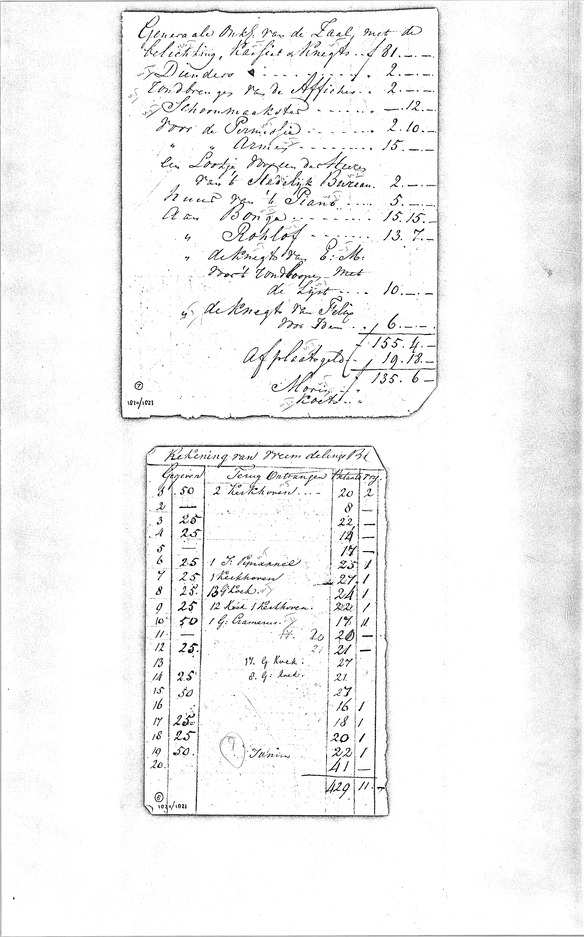 Generaale Onk. van de Zaal, met de
belichting, Kasfier & Knegts .. f 81.—.—
Dienders . . . . . 2.—.—
rondbrenger van de Affiches .. 2.—.—
Schoonmaakster . . . . —.12.—
voor de Permissie . . . . 2.10.—
" " Armen . . . . 15.—.—
een Lootje voor een der Heeren
van 't Stadelijk Bureau. 2.—.—
huur van 't Piano . . . 5.—.—
Aan Bonga . . . . . 15.15.—
" Rohlof . . . . . 13.7.—
" de knegts van E: M:
voor 't rondloopen met
de Lijst . . . 10.—.—
" de knegt van Felix
voor Idem . . f 6.—.—
f 155.4.—
Af plaatsgeld f 19.18.—
f 135.6.—
Koets
7
1820/1821
Rekening van Vreemdelings Bi
Gegeven Terug Ontvangen vry
50 2 Kerkhoven .... 20 2
2 — 8 —
3 25 22 —
4 25 14 —
5 — 17 —
6 25 1 25 1
7 25 1 Kerkhoven 27 1
8 25. 13 G Kock. 24 1
9 25 12 Kock 1 Kerkhoven. 22 1
10 50 1 G: Cramerus. 17 11
11 — 20 20 —
12 25. 21 21 —
13 17. G Kock. 27
14 25 8. G: Kock. 21
15 50 27
16 16 1
17 25 18 1
18 25 20 1
19 50. 7 22 1
20. 41 —
429 11
6
1820/1821